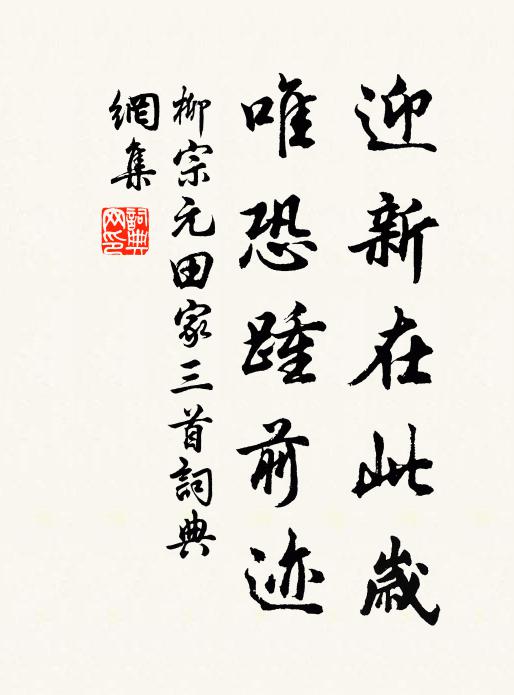 迎新在此歲
唯恐踵前迹
柳宗元田家三首詞典
網集
詞典網印